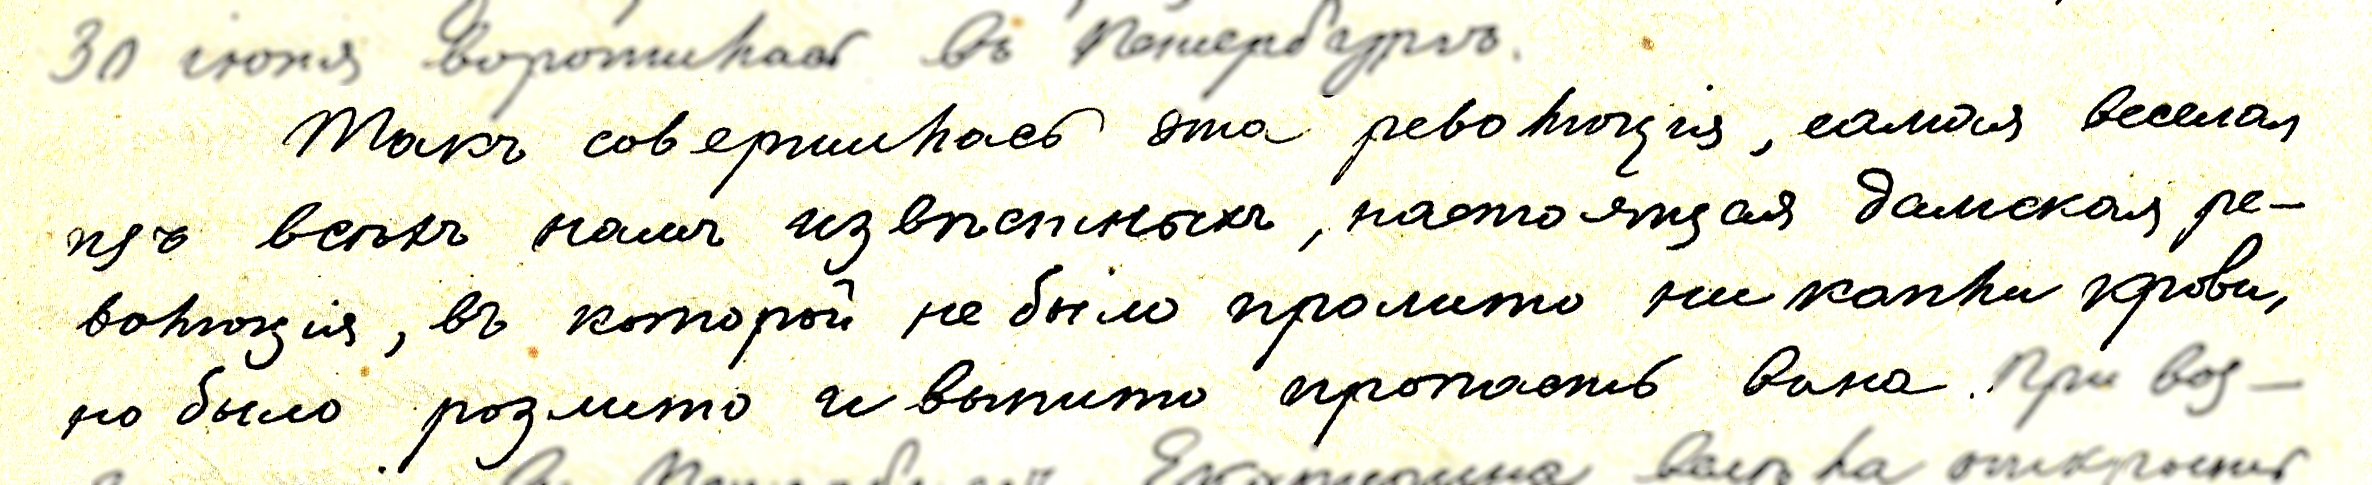 30 июня воротилась въ Петербургъ.
Такъ совершилась эта революція, самая веселая
изъ всѣхъ намъ извѣстныхъ, настоящая дамская ре-
волюція, въ которой не было пролито ни капли крови,
но было розлито и выпито пропасть вина. При воз-
Екатерина велѣла